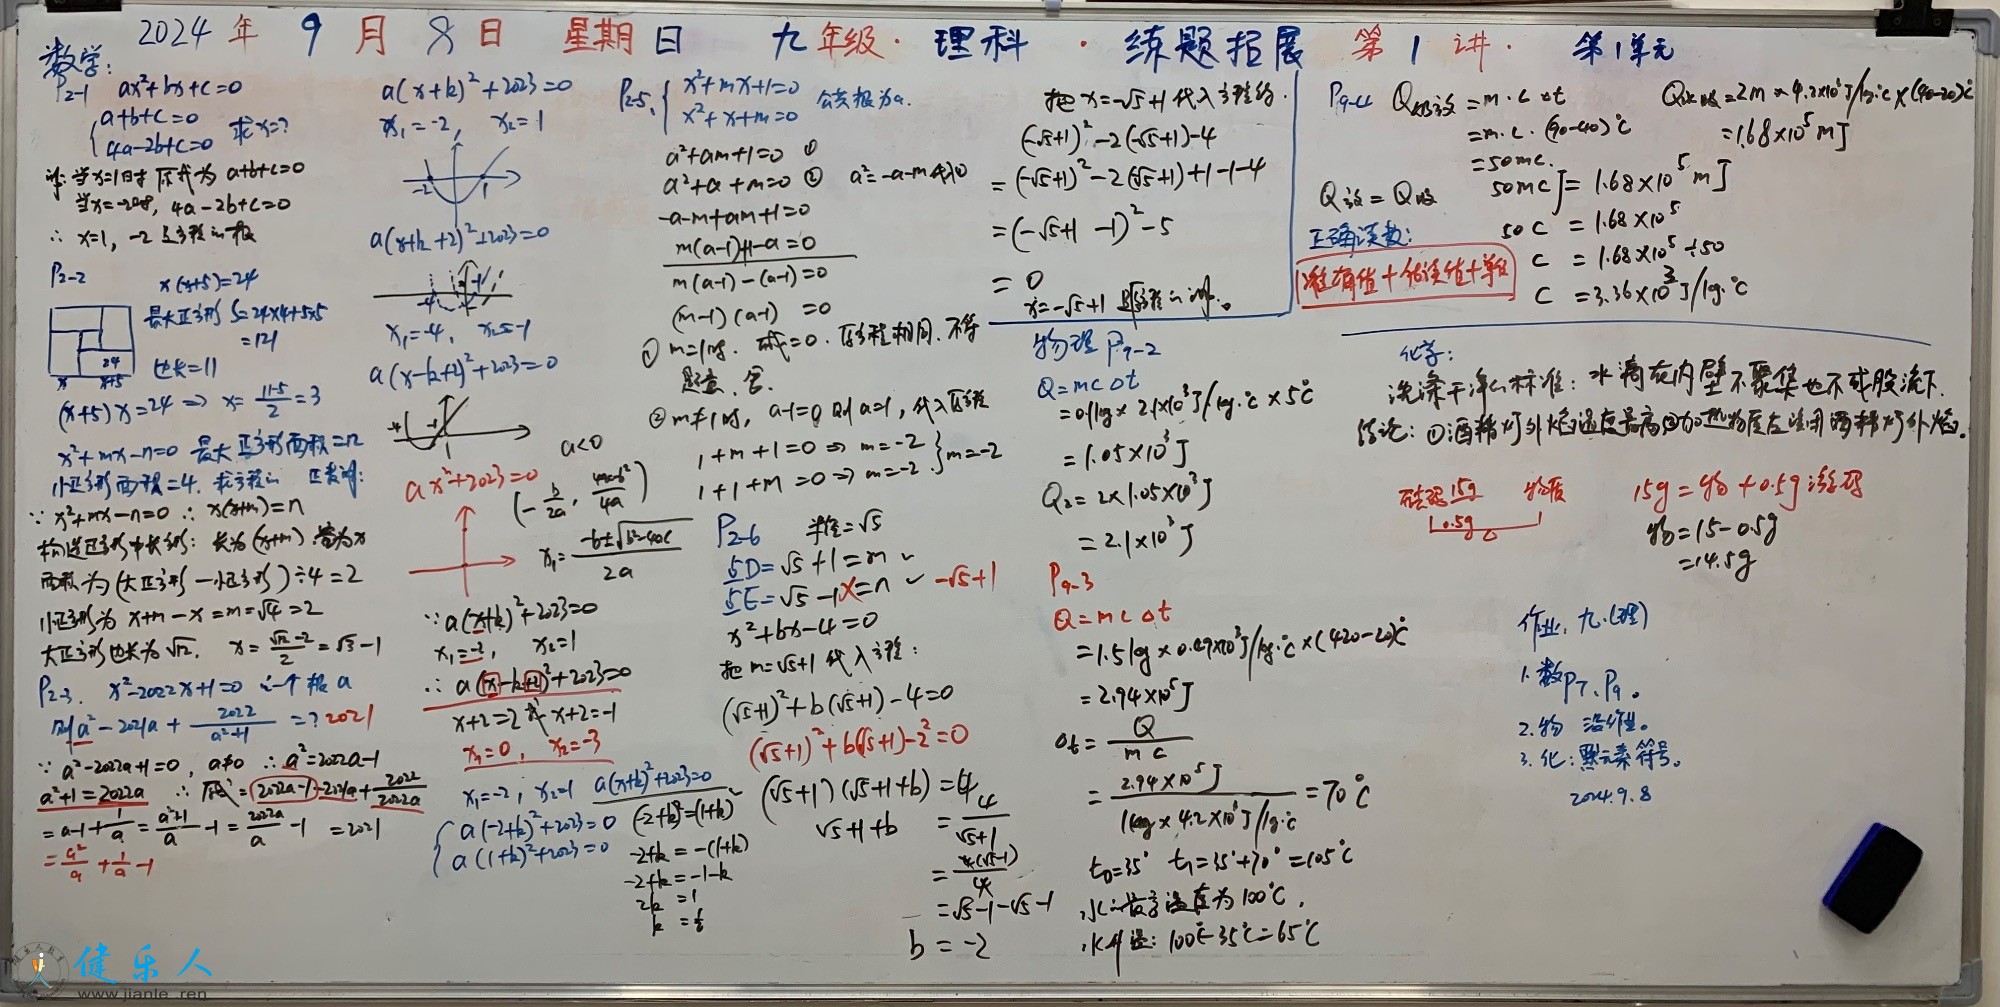 2024年9月8日 星期日 九年级·理科·练题拓展 第1讲· 第1单元
数学:
P2-1 ax²+bx+c=0
a+b+c=0
4a-2b+c=0 求x=?
当x=1时 原式为 a+b+c=0
当x=-2时, 4a-2b+c=0
∴ x=1, -2 是方程的根
P2-2 x(x+5)=24
最大正方形 S=24×4+5×5
=121
24
x x+5
边长=11
(x+5)x=24 ⇒ x=(11-5)/2=3
x²+mx-n=0 最大正方形面积=12
小正方形面积=4. 求方程的 正数解:
∵ x²+mx-n=0 ∴ x(x+m)=n
构造正方形中长方形: 长为(x+m) 宽为x
面积为(大正方形-小正方形)÷4=2
小正方形为 x+m-x=m=√4=2
大正方形边长为√12. x=(√12-2)/2=√3-1
P2-3. x²-2022x+1=0 的一个根a
则a²-2021a+2022/(a²+1)=? 2021
∵ a²-2022a+1=0, a≠0 ∴ a²=2022a-1
a²+1=2022a ∴ 原式=2022a-1-2021a+2022/2022a
=a-1+1/a=(a²+1)/a-1=2022a/a-1=2021
=a²/a+1/a-1
a(x+k)²+2023=0
x₁=-2, x₂=1
-2 1
a(x+k+2)²+2023=0
-4 -1
x₁=-4, x₂=-1
a(x-k+2)²+2023=0
a<0
ax²+2023=0
(-b/2a, (4ac-b²)/4a)
x₁=(-b±√(b²-4ac))/2a
∵ a(x+k)²+2023=0
x₁=-2, x₂=1
∴ a(x-k+2)²+2023=0
x+2=2 或 x+2=-1
x₁=0, x₂=-3
x₁=-2, x₂=1 a(x+k)²+2023=0
a(-2+k)²+2023=0
a(1+k)²+2023=0
(-2+k)²=(1+k)²
-2+k=-(1+k)
-2+k=-1-k
2k=1
k=½
P2-5. x²+mx+1=0
x²+x+m=0 公共根为a.
a²+am+1=0 ①
a²+a+m=0 ② a²=-a-m代入①
-a-m+am+1=0
m(a-1)+1-a=0
m(a-1)-(a-1)=0
(m-1)(a-1)=0
① m=1时. 原式=0. 两方程相同. 不符
题意. 舍.
② m≠1时, a-1=0 则a=1, 代入原方程
1+m+1=0 ⇒ m=-2
1+1+m=0 ⇒ m=-2 } m=-2
P2-6 半径=√5
BD=√5+1=m ✓
BE=√5-1 X=n ✓ -√5+1
x²+bx-4=0
把m=√5+1代入方程:
(√5+1)²+b(√5+1)-4=0
(√5+1)²+b(√5+1)-2²=0
(√5+1)(√5+1+b)=4
√5+1+b=4/(√5+1)
=4(√5-1)/4
=√5-1-√5-1
b=-2
把x=-√5+1代入方程的.
(-√5+1)²-2(-√5+1)-4
=(-√5+1)²-2(-√5+1)+1-1-4
=(-√5+1-1)²-5
=0
x=-√5+1 是原方程的解。
物理 P9-2
Q=mc△t
=0.1kg×2.1×10³J/kg·℃×5℃
=1.05×10³J
Q₂=2×1.05×10³J
=2.1×10³J
P9-3
Q=mc△t
=1.5kg×0.49×10³J/kg·℃×(420-20)℃
=2.94×10⁵J
△t=Q/mc
=2.94×10⁵J/(1kg×4.2×10³J/kg·℃)=70℃
t₀=35° t₁=35°+70°=105℃
水的最高温度为100℃,
水升温: 100℃-35℃=65℃
P9-4 Q放=m·c·△t
=m·c·(90-40)℃
=50mc.
Q水吸=2m×4.2×10³J/kg·℃×(40-20)℃
=1.68×10⁵mJ
Q放=Q吸
50mcJ=1.68×10⁵mJ
50c=1.68×10⁵
c=1.68×10⁵÷50
c=3.36×10³J/kg·℃
正确读数:
准确值+估读值+单位
化学:
洗涤干净的标准: 水滴在内壁不聚集也不成股流下.
结论: ①酒精灯外焰温度最高 ②加热物质应该用酒精灯外焰。
砝码15g 物质
0.5g
15g=物+0.5g游码
物=15-0.5g
=14.5g
作业: 九.(理)
1. 数P7、P9。
2. 物
3. 化: 默元素符号。
2024.9.8
健乐人
www.jianle.ren